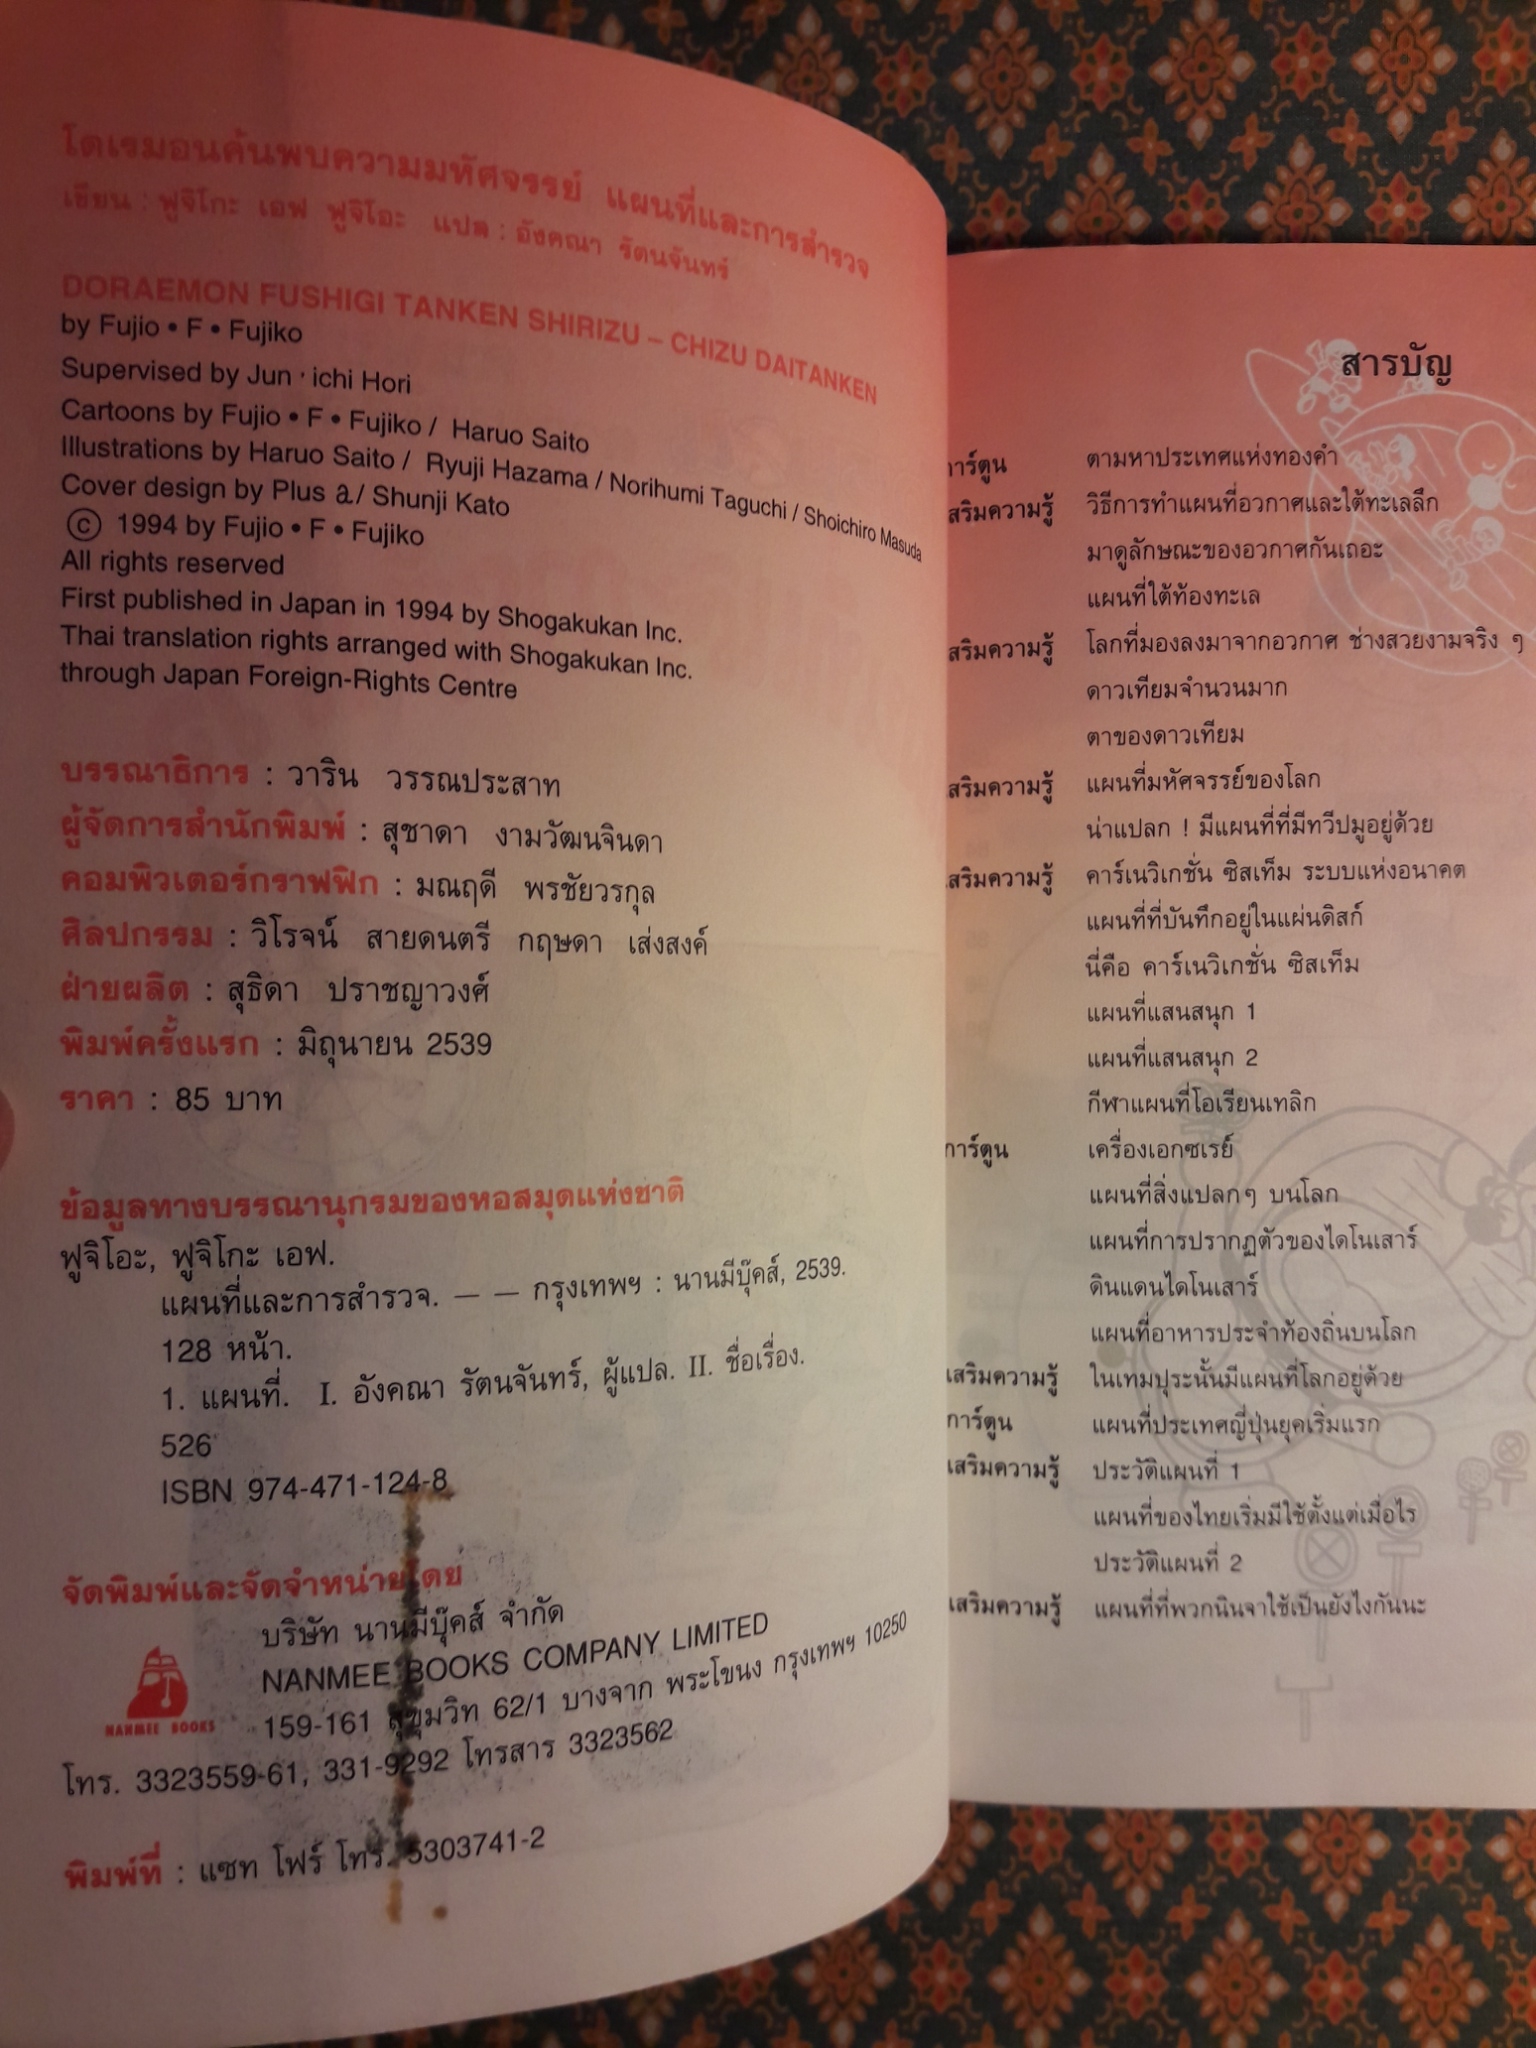 โดเรมอนค้นพบความมหัศจรรย์ แผนที่และการสำรวจ
เขียน : ฟูจิโกะ เอฟ ฟูจิโอะ แปล : อังคณา รัตนจันทร์
DORAEMON FUSHIGI TANKEN SHIRIZU – CHIZU DAITANKEN
by Fujio • F • Fujiko
Supervised by Jun ' ichi Hori
Cartoons by Fujio • F • Fujiko / Haruo Saito
Illustrations by Haruo Saito / Ryuji Hazama / Norihumi Taguchi / Shoichiro Masuda
Cover design by Plus a / Shunji Kato
© 1994 by Fujio • F • Fujiko
All rights reserved
First published in Japan in 1994 by Shogakukan Inc.
Thai translation rights arranged with Shogakukan Inc.
through Japan Foreign-Rights Centre
บรรณาธิการ : วาริน วรรณประสาท
ผู้จัดการสำนักพิมพ์ : สุชาดา งามวัฒนจินดา
คอมพิวเตอร์กราฟฟิก : มณฤดี พรชัยวรกุล
ศิลปกรรม : วิโรจน์ สายดนตรี กฤษดา เส่งสงค์
ฝ่ายผลิต : สุธิดา ปราชญาวงศ์
พิมพ์ครั้งแรก : มิถุนายน 2539
ราคา : 85 บาท
ข้อมูลทางบรรณานุกรมของหอสมุดแห่งชาติ
ฟูจิโอะ, ฟูจิโกะ เอฟ.
แผนที่และการสำรวจ. — — กรุงเทพฯ : นานมีบุ๊คส์, 2539.
128 หน้า.
1. แผนที่. I. อังคณา รัตนจันทร์, ผู้แปล. II. ชื่อเรื่อง.
526
ISBN 974-471-124-8
จัดพิมพ์และจัดจำหน่ายโดย
บริษัท นานมีบุ๊คส์ จำกัด
NANMEE BOOKS COMPANY LIMITED
159-161 สุขุมวิท 62/1 บางจาก พระโขนง กรุงเทพฯ 10250
NANMEE BOOKS
โทร. 3323559-61, 331-9292 โทรสาร 3323562
พิมพ์ที่ : แซท โฟร์ โทร. 5303741-2
สารบัญ
การ์ตูน ตามหาประเทศแห่งทองคำ
เสริมความรู้ วิธีการทำแผนที่อวกาศและใต้ทะเลลึก
มาดูลักษณะของอวกาศกันเถอะ
แผนที่ใต้ท้องทะเล
เสริมความรู้ โลกที่มองลงมาจากอวกาศ ช่างสวยงามจริง ๆ
ดาวเทียมจำนวนมาก
ตาของดาวเทียม
เสริมความรู้ แผนที่มหัศจรรย์ของโลก
น่าแปลก ! มีแผนที่ที่มีทวีปมูอยู่ด้วย
เสริมความรู้ คาร์เนวิเกชั่น ซิสเท็ม ระบบแห่งอนาคต
แผนที่ที่บันทึกอยู่ในแผ่นดิสก์
นี่คือ คาร์เนวิเกชั่น ซิสเท็ม
แผนที่แสนสนุก 1
แผนที่แสนสนุก 2
กีฬาแผนที่โอเรียนเทลิก
การ์ตูน เครื่องเอกซเรย์
แผนที่สิ่งแปลกๆ บนโลก
แผนที่การปรากฏตัวของไดโนเสาร์
ดินแดนไดโนเสาร์
แผนที่อาหารประจำท้องถิ่นบนโลก
เสริมความรู้ ในเทมปุระนั้นมีแผนที่โลกอยู่ด้วย
การ์ตูน แผนที่ประเทศญี่ปุ่นยุคเริ่มแรก
เสริมความรู้ ประวัติแผนที่ 1
แผนที่ของไทยเริ่มมีใช้ตั้งแต่เมื่อไร
ประวัติแผนที่ 2
เสริมความรู้ แผนที่ที่พวกนินจาใช้เป็นยังไงกันนะ